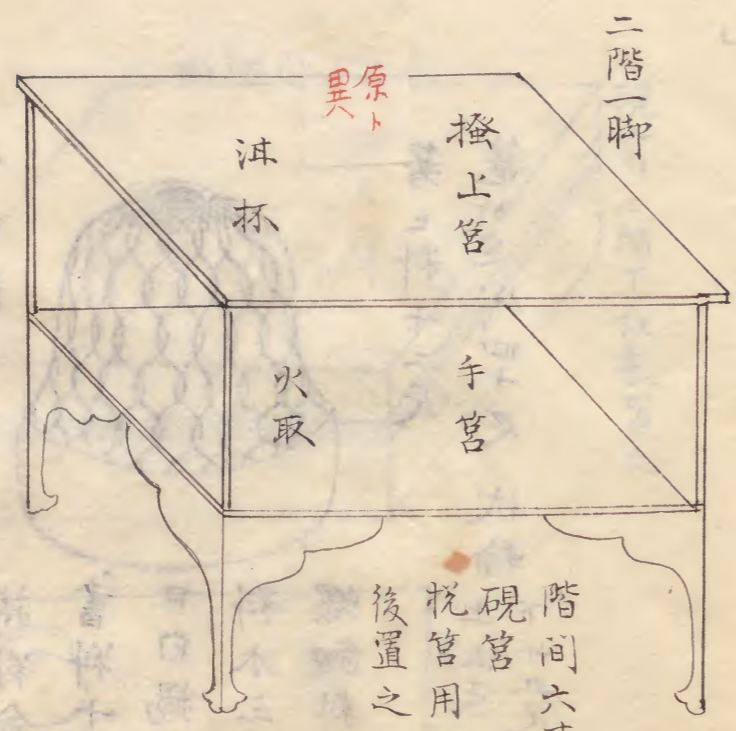 二階一脚
原ト
異
掻上筥
泔杯
手筥
火取
階間六
硯筥
挩筥用
後置之